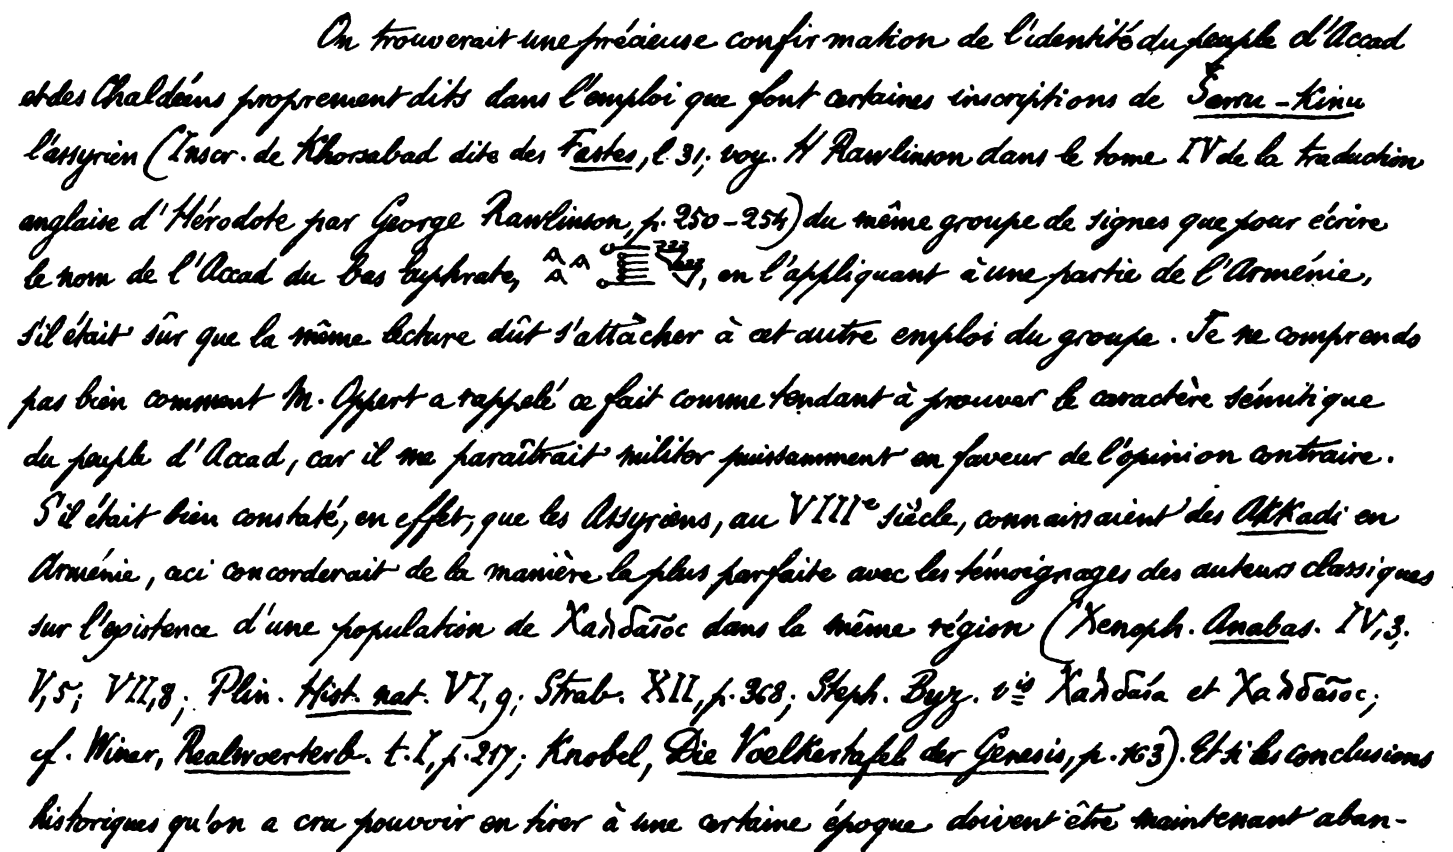 On trouverait une précieuse confirmation de l'identité du peuple d'Accad
et des Chaldéens proprement dits dans l'emploi que font certaines inscriptions de Šarru-Kinu
l'assyrien (Inscr. de Khorsabad dite des Fastes, l. 31; voy. H Rawlinson dans le tome IV de la traduction
anglaise d'Hérodote par George Rawlinson, p. 250-254) du même groupe de signes que pour écrire
le nom de l'Accad du bas Euphrate, , en l'appliquant à une partie de l'Arménie,
s'il était sûr que la même lecture dût s'attâcher à cet autre emploi du groupe. Je ne comprends
pas bien comment M. Oppert a rappelé ce fait comme tendant à prouver le caractère sémitique
du peuple d'Accad, car il me paraîtrait militer puissamment en faveur de l'opinion contraire.
S'il était bien constaté, en effet, que les Assyriens, au VIIIe siècle, connaissaient des Akkadi en
Arménie, ceci concorderait de la manière la plus parfaite avec les témoignages des auteurs classiques
sur l'existence d'une population de Χαλδαῖοι dans la même région (Xenoph. Anabas. IV, 3;
V, 5; VII, 8; Plin. Hist. nat. VI, 9; Strab. XII, p. 368; Steph. Byz. vis Χαλδαία et Χαλδαῖοι;
cf. Winer, Realwoerterb. t. I, p. 217; Knobel, Die Voelkertafel der Genesis, p. 163). Et si les conclusions
historiques qu'on a cru pouvoir en tirer à une certaine époque doivent être maintenant aban-